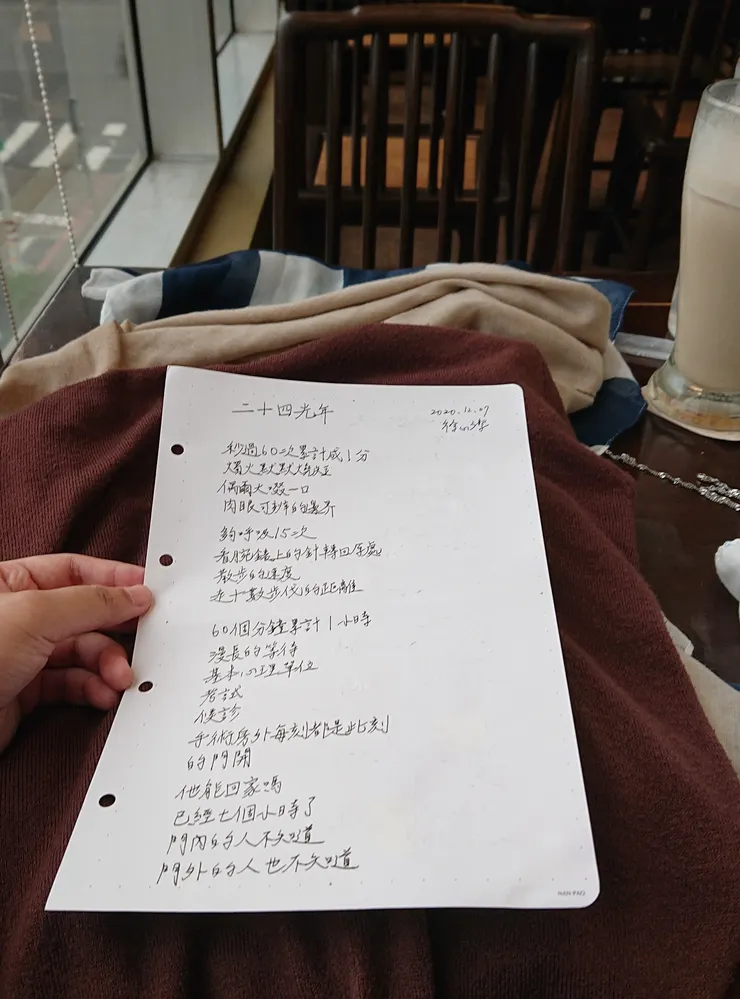 二十四光年
2020.12.07
秒過60次累計成1分
燭火默默燒短
偶爾火啜一口
肉眼可
約呼吸15次
看腕錶上的針轉回原處
散步的速度
走十數步伐的距離
60個分鐘累計1小時
漫長的等待
基本心理單位
考試
候診
手術房外每刻都是此刻
的門開
他能回家嗎
已經七個小時了
門內的人不知道
門外的人也不知道
NAN PAO